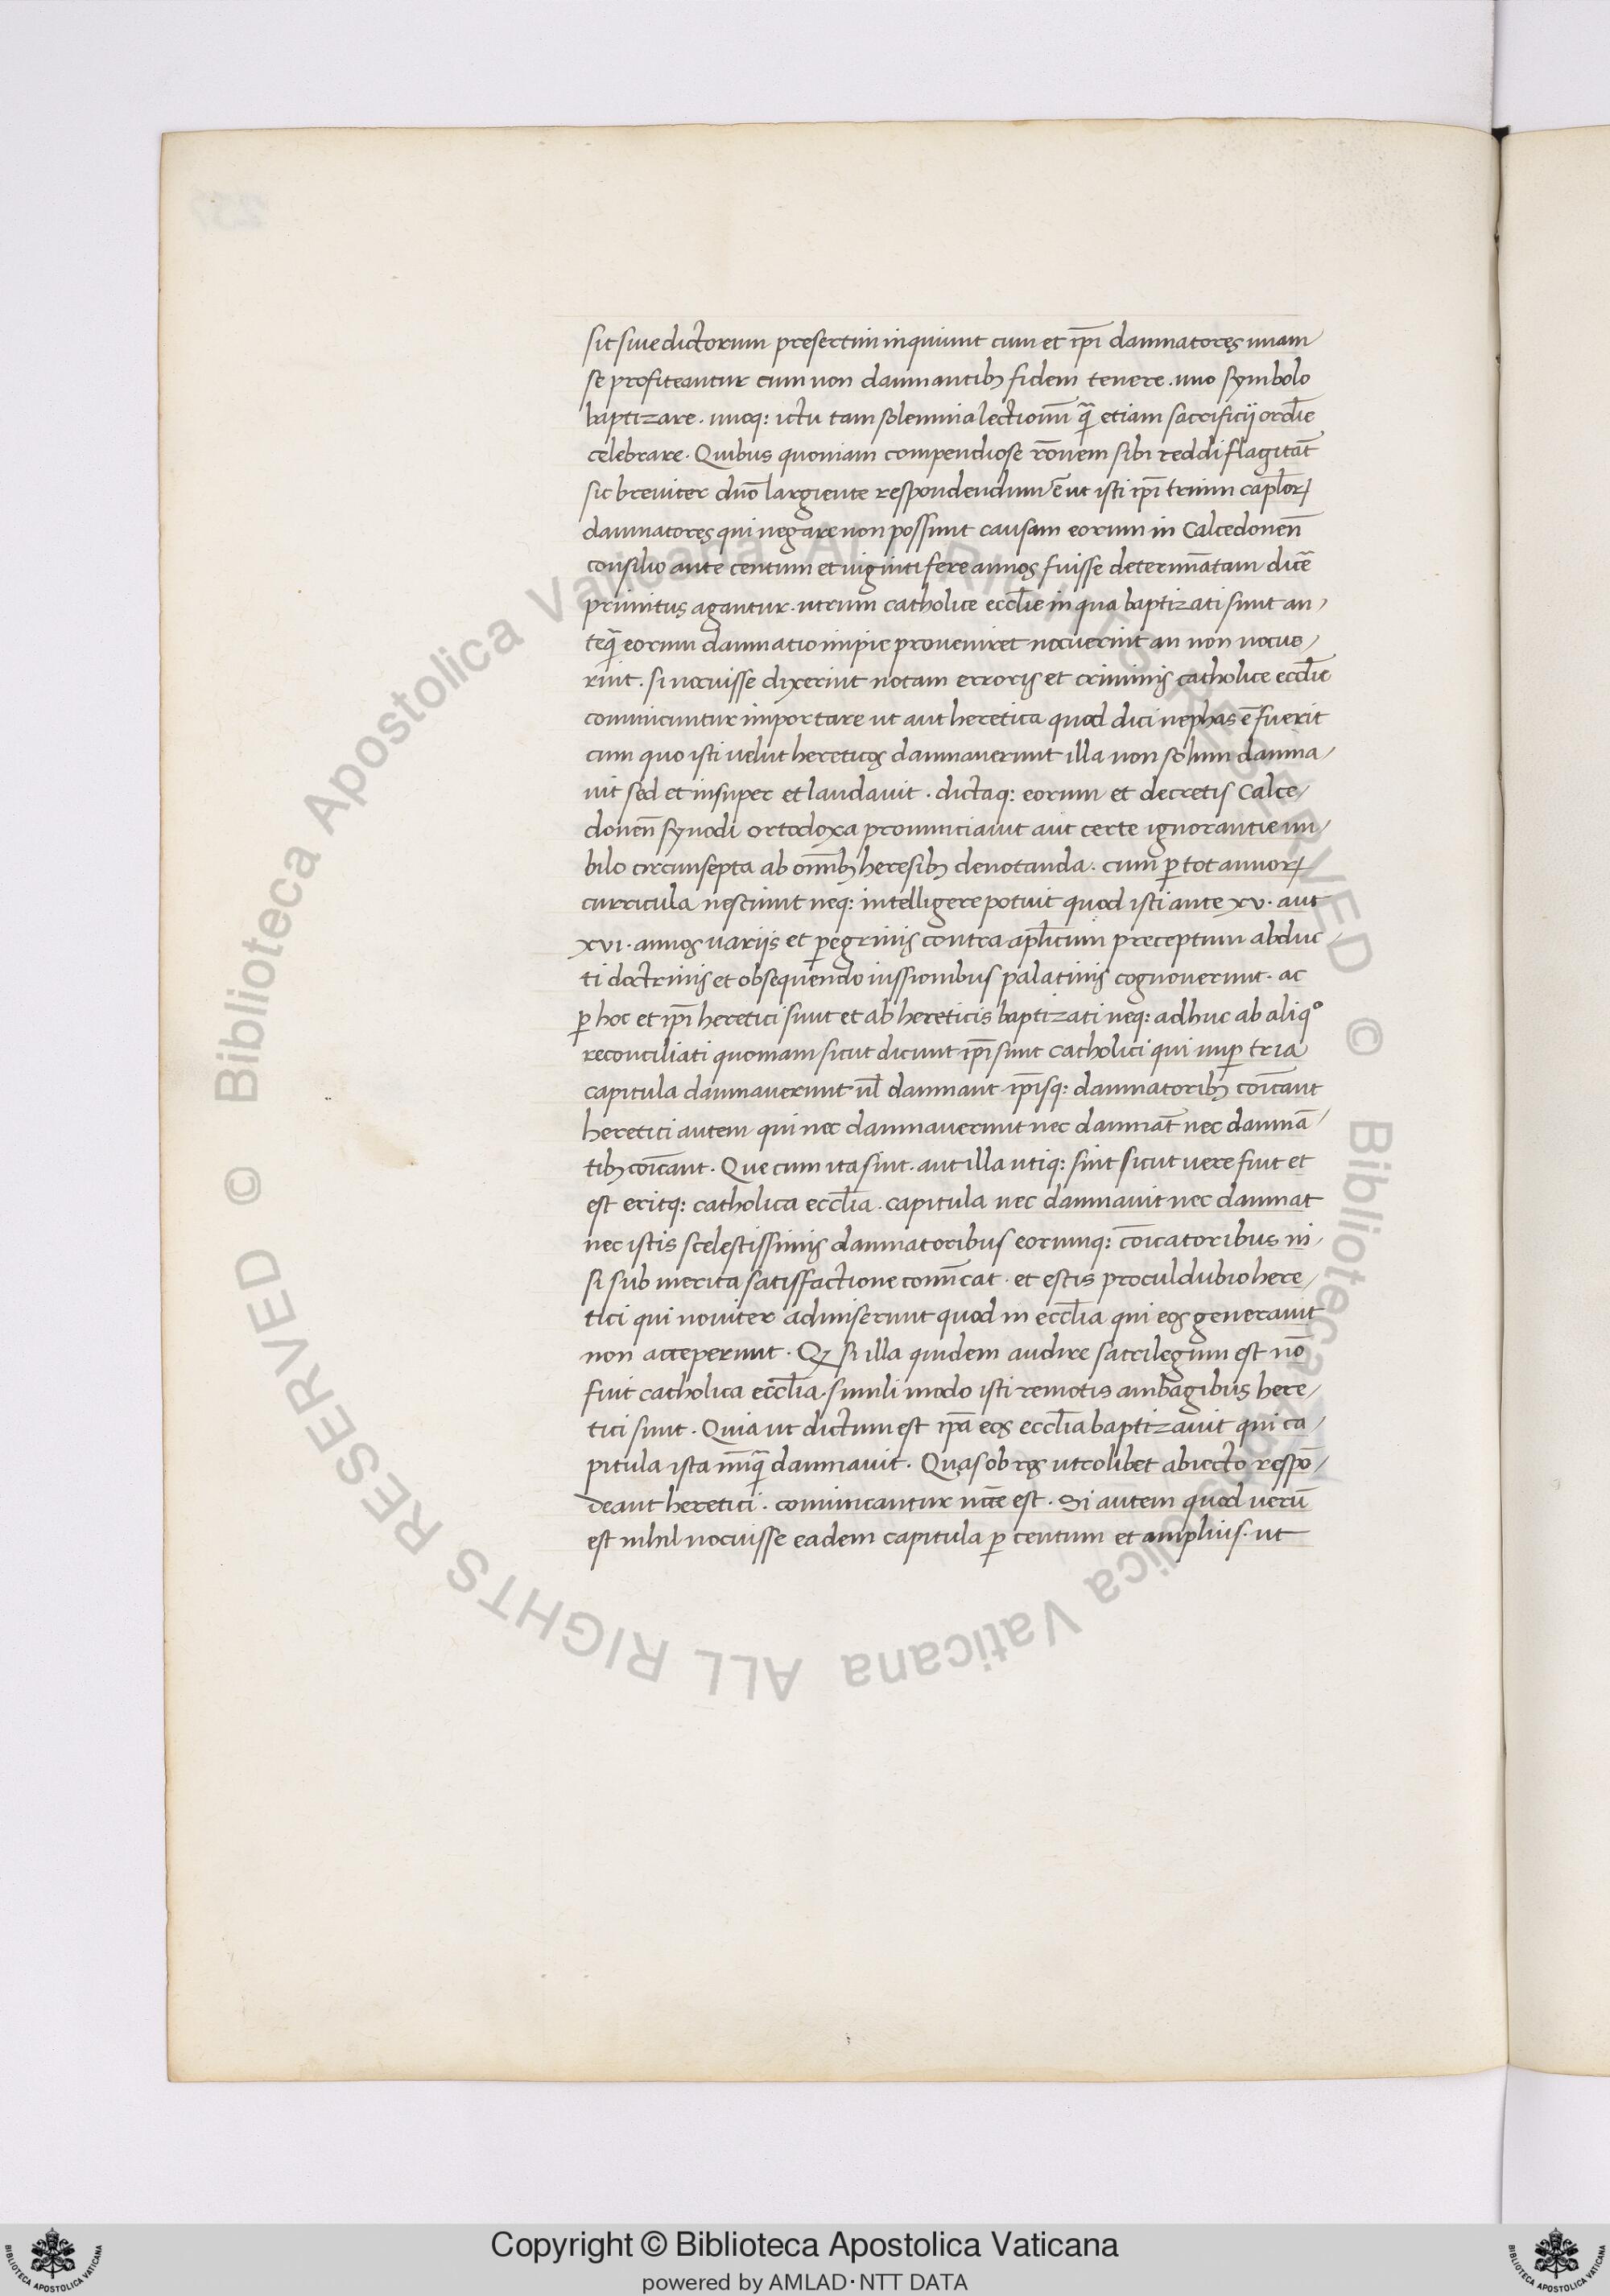 sit siue dictorum presertim inquiunt cum et ip̄i damnatores unam
se profiteantur cum non damnantibꝫ fidem tenere. uno symbolo
baptizare. unoq: ictu tam solemnia lectionū q̄ etiam sacrificij ordīe
celebrare. Quibus quoniam compendiose rōnem sibi reddi flagitāt
sic breviter dn̄o largiente respondendum ē ut isti ip̄i trium capl̄oꝝ
damnatores qui negare non possunt causam eorum in Calcedonen̄
consilio ante centum et uiginti fere annos fuisse determīatam dicā
primitus agantur. utrum catholice eccl̄ie in qua baptizati sunt an/
teq̄ eorum damnatio impie proveniret nocuerint an non nocue/
rint. si nocuisse dixerint notam erroris et criminis catholice eccl̄ie
convincuntur importare ut aut heretica quod dici nephas ē fuerit
cum quo isti velut hereticos damnaverunt illa non solum damna/
uit sed et insuper et laudauit. dictaq: eorum et decretis Calce/
donen̄ synodi ortodoxa pronunciauit aut certe ignorantie nu/
bilo circunsepta ab om̄ibꝫ heresibꝫ denotanda. cum ꝑ tot annoꝝ
curricula nesciuit neq: intelligere potuit quod isti ante xv. aut
xvi. annos uariis et ꝑegrinis contra apl̄icum preceptum abduc/
ti doctrinis et obsequendo iussionibus palatinis cognoverunt. ac
ꝑ hoc et ip̄i heretici sunt et ab hereticis baptizati neq: adhuc ab aliqº
reconciliati quoniam sicut dicunt ip̄i sunt catholici qui nuꝑ tria
capitula damnaverunt ul̄ damnant ip̄isq: damnatoribꝫ cōicant
heretici autem qui nec damnaverunt nec damnāt nec damnā/
tibꝫ cōicant. Que cum ita sint. aut illa utiq: sint sicut vere fuit et
est eritq: catholica eccl̄ia. capitula nec damnauit nec damnat
nec istis scelestissimis damnatoribus eorumq: cōicatoribus ni/
si sub merita satisfactione comūicat. et estis proculdubio here/
tici qui noviter admiserunt quod in eccl̄ia qui eos generauit
non acceperunt. Qꝫ si illa quidem audire sacrilegum est nō
fuit catholica eccl̄ia. simili modo isti remotis ambagibus here/
tici sunt. Quia ut dictum est ip̄a eos eccl̄ia baptizauit qui ca/
pitula ista nūq̄ damnauit. Quas ob res uteolibet abiecto respō/
deant heretici. convincantur nc̄e est. Si autem quod verū
est nihil nocuisse eadem capitula ꝑ centum et amplius. ut
© Biblioteca Apostolica Vaticana ALL RIGHTS RESERVED
© Biblioteca Apostolica Vaticana ALL RIGHTS RESERVED
Copyright © Biblioteca Apostolica Vaticana
powered by AMLAD·NTT DATA
BIBLIOTECA APOSTOLICA VATICANA
BIBLIOTECA APOSTOLICA VATICANA